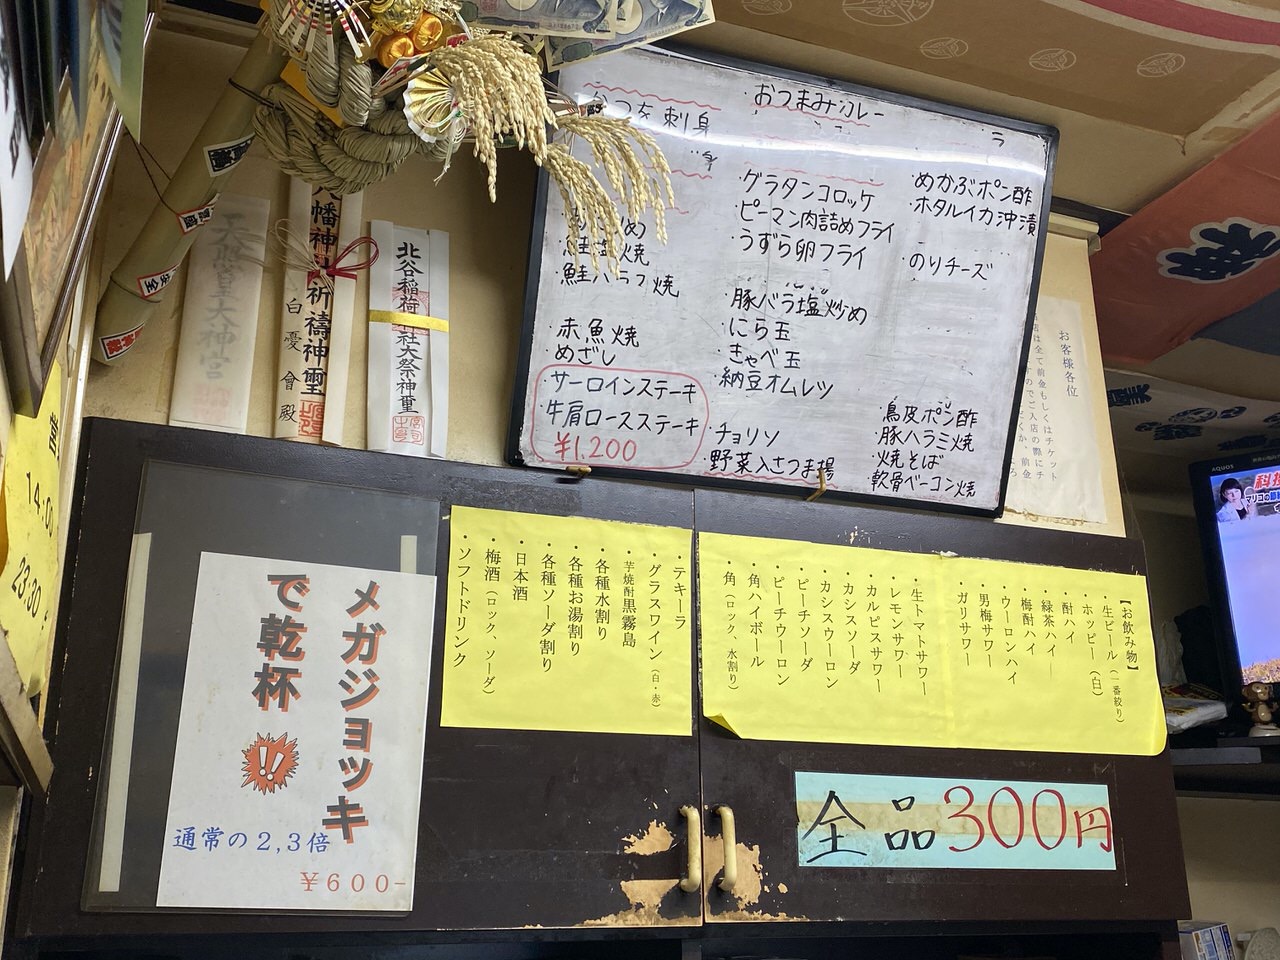 おつまみカレー
かつを刺身
ラ
・グラタンコロッケ
・ピーマン肉詰めフライ
・うずら卵フライ
・めかぶポン酢
・ホタルイカ沖漬
・のりチーズ
・鮭塩焼
・鮭ハラス焼
・赤魚焼
・めざし
・サーロインステーキ
・牛肩ロースステーキ
¥1,200
・豚バラ塩炒め
・にら玉
・きゃべ玉
・納豆オムレツ
・チョリソ
・野菜入さつま揚
・鳥皮ポン酢
・豚ハラミ焼
・焼そば
・軟骨ベーコン焼
お客様各位
天照皇大神宮
八幡神社祈禱神璽
白憂會殿
北谷稲荷神社大祭神璽
14:00
23:30
メガジョッキ
で乾杯!!
通常の2,3倍
¥600-
【お飲み物】
・生ビール(一番絞り)
・ホッピー(白)
・酎ハイ
・緑茶ハイ
・梅酎ハイ
・ウーロンハイ
・男梅サワー
・ガリサワー
・生トマトサワー
・レモンサワー
・カルピスサワー
・カシスソーダ
・カシスウーロン
・ピーチソーダ
・ピーチウーロン
・角ハイボール
・角(ロック、水割り)
・テキーラ
・グラスワイン(白・赤)
・芋焼酎黒霧島
・各種水割り
・各種お湯割り
・各種ソーダ割り
・日本酒
・梅酒(ロック、ソーダ)
・ソフトドリンク
全品300円
AQUOS